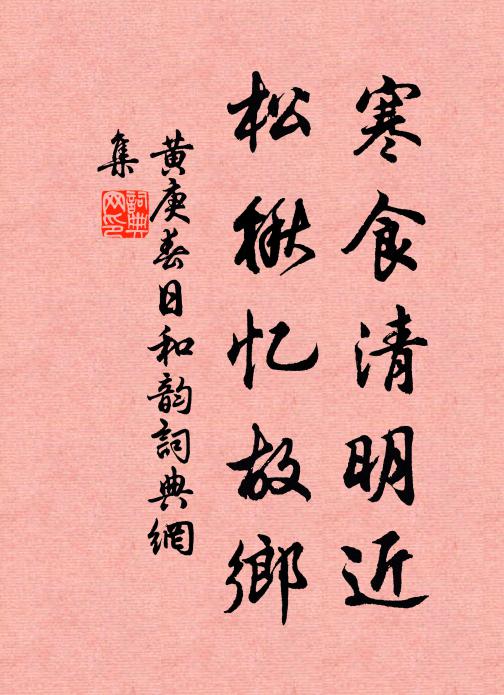 寒食清明近
松楸忆故鄉
黄庚春日和韵詞典網
集
詞典网印